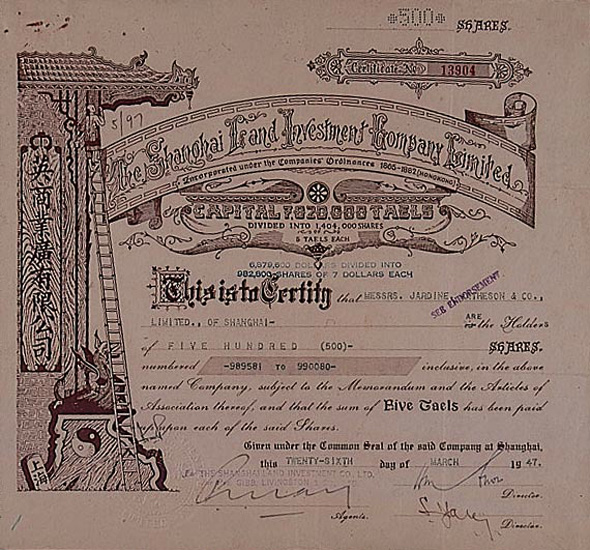 *500* SHARES.
Certificate No 13904
5/97
The Shanghai Land Investment Company Limited.
Incorporated under the Companies' Ordinances 1865-1882 (HONGKONG)
CAPITAL 7,020,000 TAELS
DIVIDED INTO 1,404,000 SHARES
5 TAELS EACH
DOLLARS DIVIDED INTO
982,800 SHARES OF 7 DOLLARS EACH
SEE ENDORSEMENT
This is to Certify that MESSRS. JARDINE, MATHESON & CO.,
LIMITED., OF SHANGHAI- ARE the Holders
of FIVE HUNDRED (500)- SHARES.
numbered -989581 TO 990080- inclusive, in the above
named Company, subject to the Memorandum and the Articles of
Association thereof, and that the sum of Five Taels has been paid
up upon each of the said Shares.
Given under the Common Seal of the said Company at Shanghai,
this TWENTY-SIXTH day of MARCH 1947.
THE SHANGHAI LAND INVESTMENT CO. LTD.
GIBB, LIVINGSTON
Director.
Agents.
Director.
英商業廣有限公司
上海